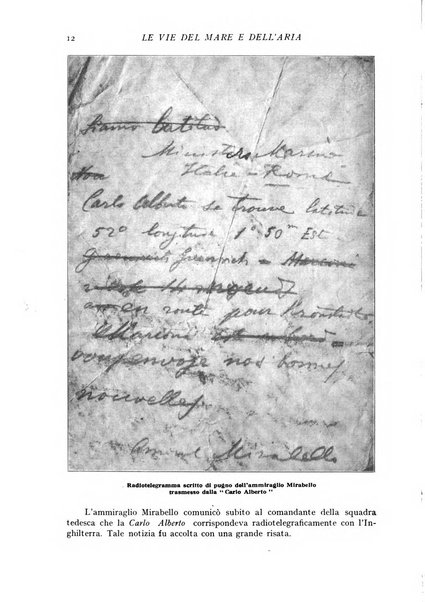 12
LE VIE DEL MARE E DELL'ARIA
Siamo
Ministero Marina
Italie - Rome
Non
Carlo Alberto se trouve latitude
52° longitude 1° 50m Est
Greenwich Greenwich Marconi
en route pour Kronstadt
Marconi
vous envoye nos bonnes
nouvelles
Mirabello
Radiotelegramma scritto di pugno dell'ammiraglio Mirabello
trasmesso dalla "Carlo Alberto"
L'ammiraglio Mirabello comunicò subito al comandante della squadra
tedesca che la Carlo Alberto corrispondeva radiotelegraficamente con l'In-
ghilterra. Tale notizia fu accolta con una grande risata.